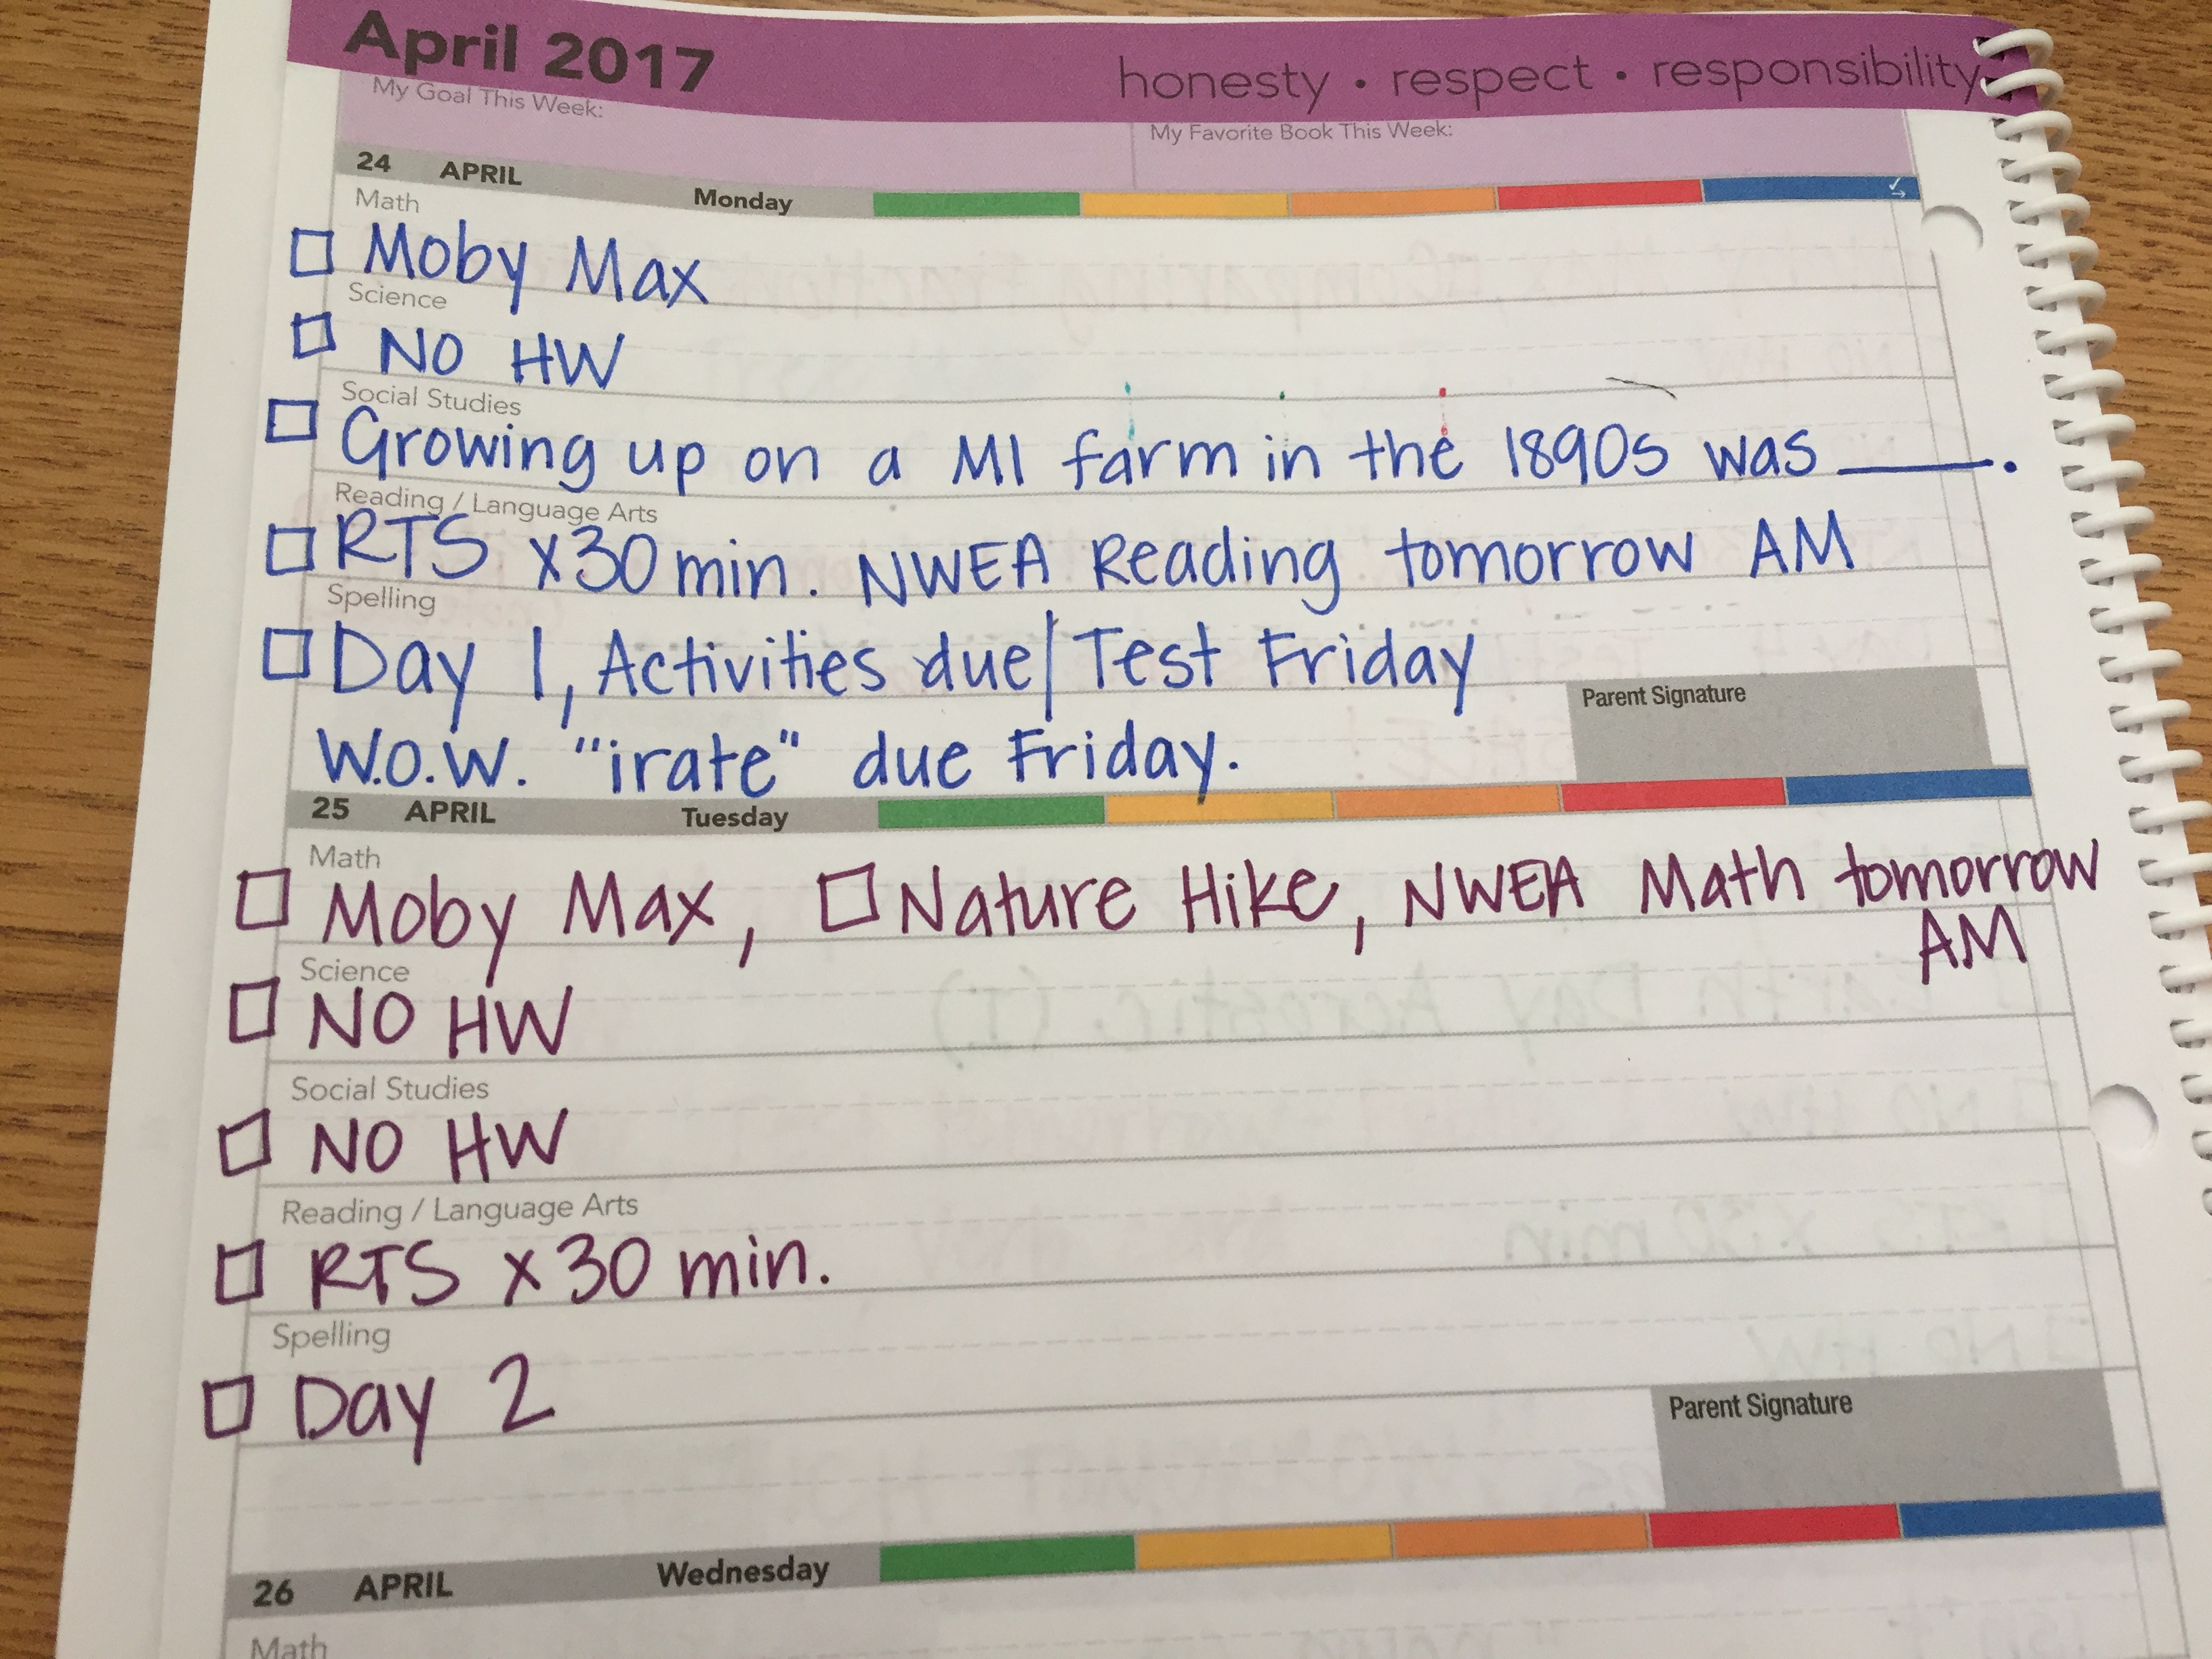 April 2017 honesty • respect • responsibility
My Goal This Week: My Favorite Book This Week:
24 APRIL Monday
Math
Moby Max
Science
NO HW
Social Studies
Growing up on a MI farm in the 1890s was ____.
Reading / Language Arts
RTS x30 min. NWEA Reading tomorrow AM
Spelling
Day 1, Activities due/Test Friday
W.O.W. "irate" due Friday.
Parent Signature
25 APRIL Tuesday
Math
Moby Max, Nature Hike, NWEA Math tomorrow
AM
Science
NO HW
Social Studies
NO HW
Reading / Language Arts
RTS x30 min.
Spelling
Day 2
Parent Signature
26 APRIL Wednesday
Math